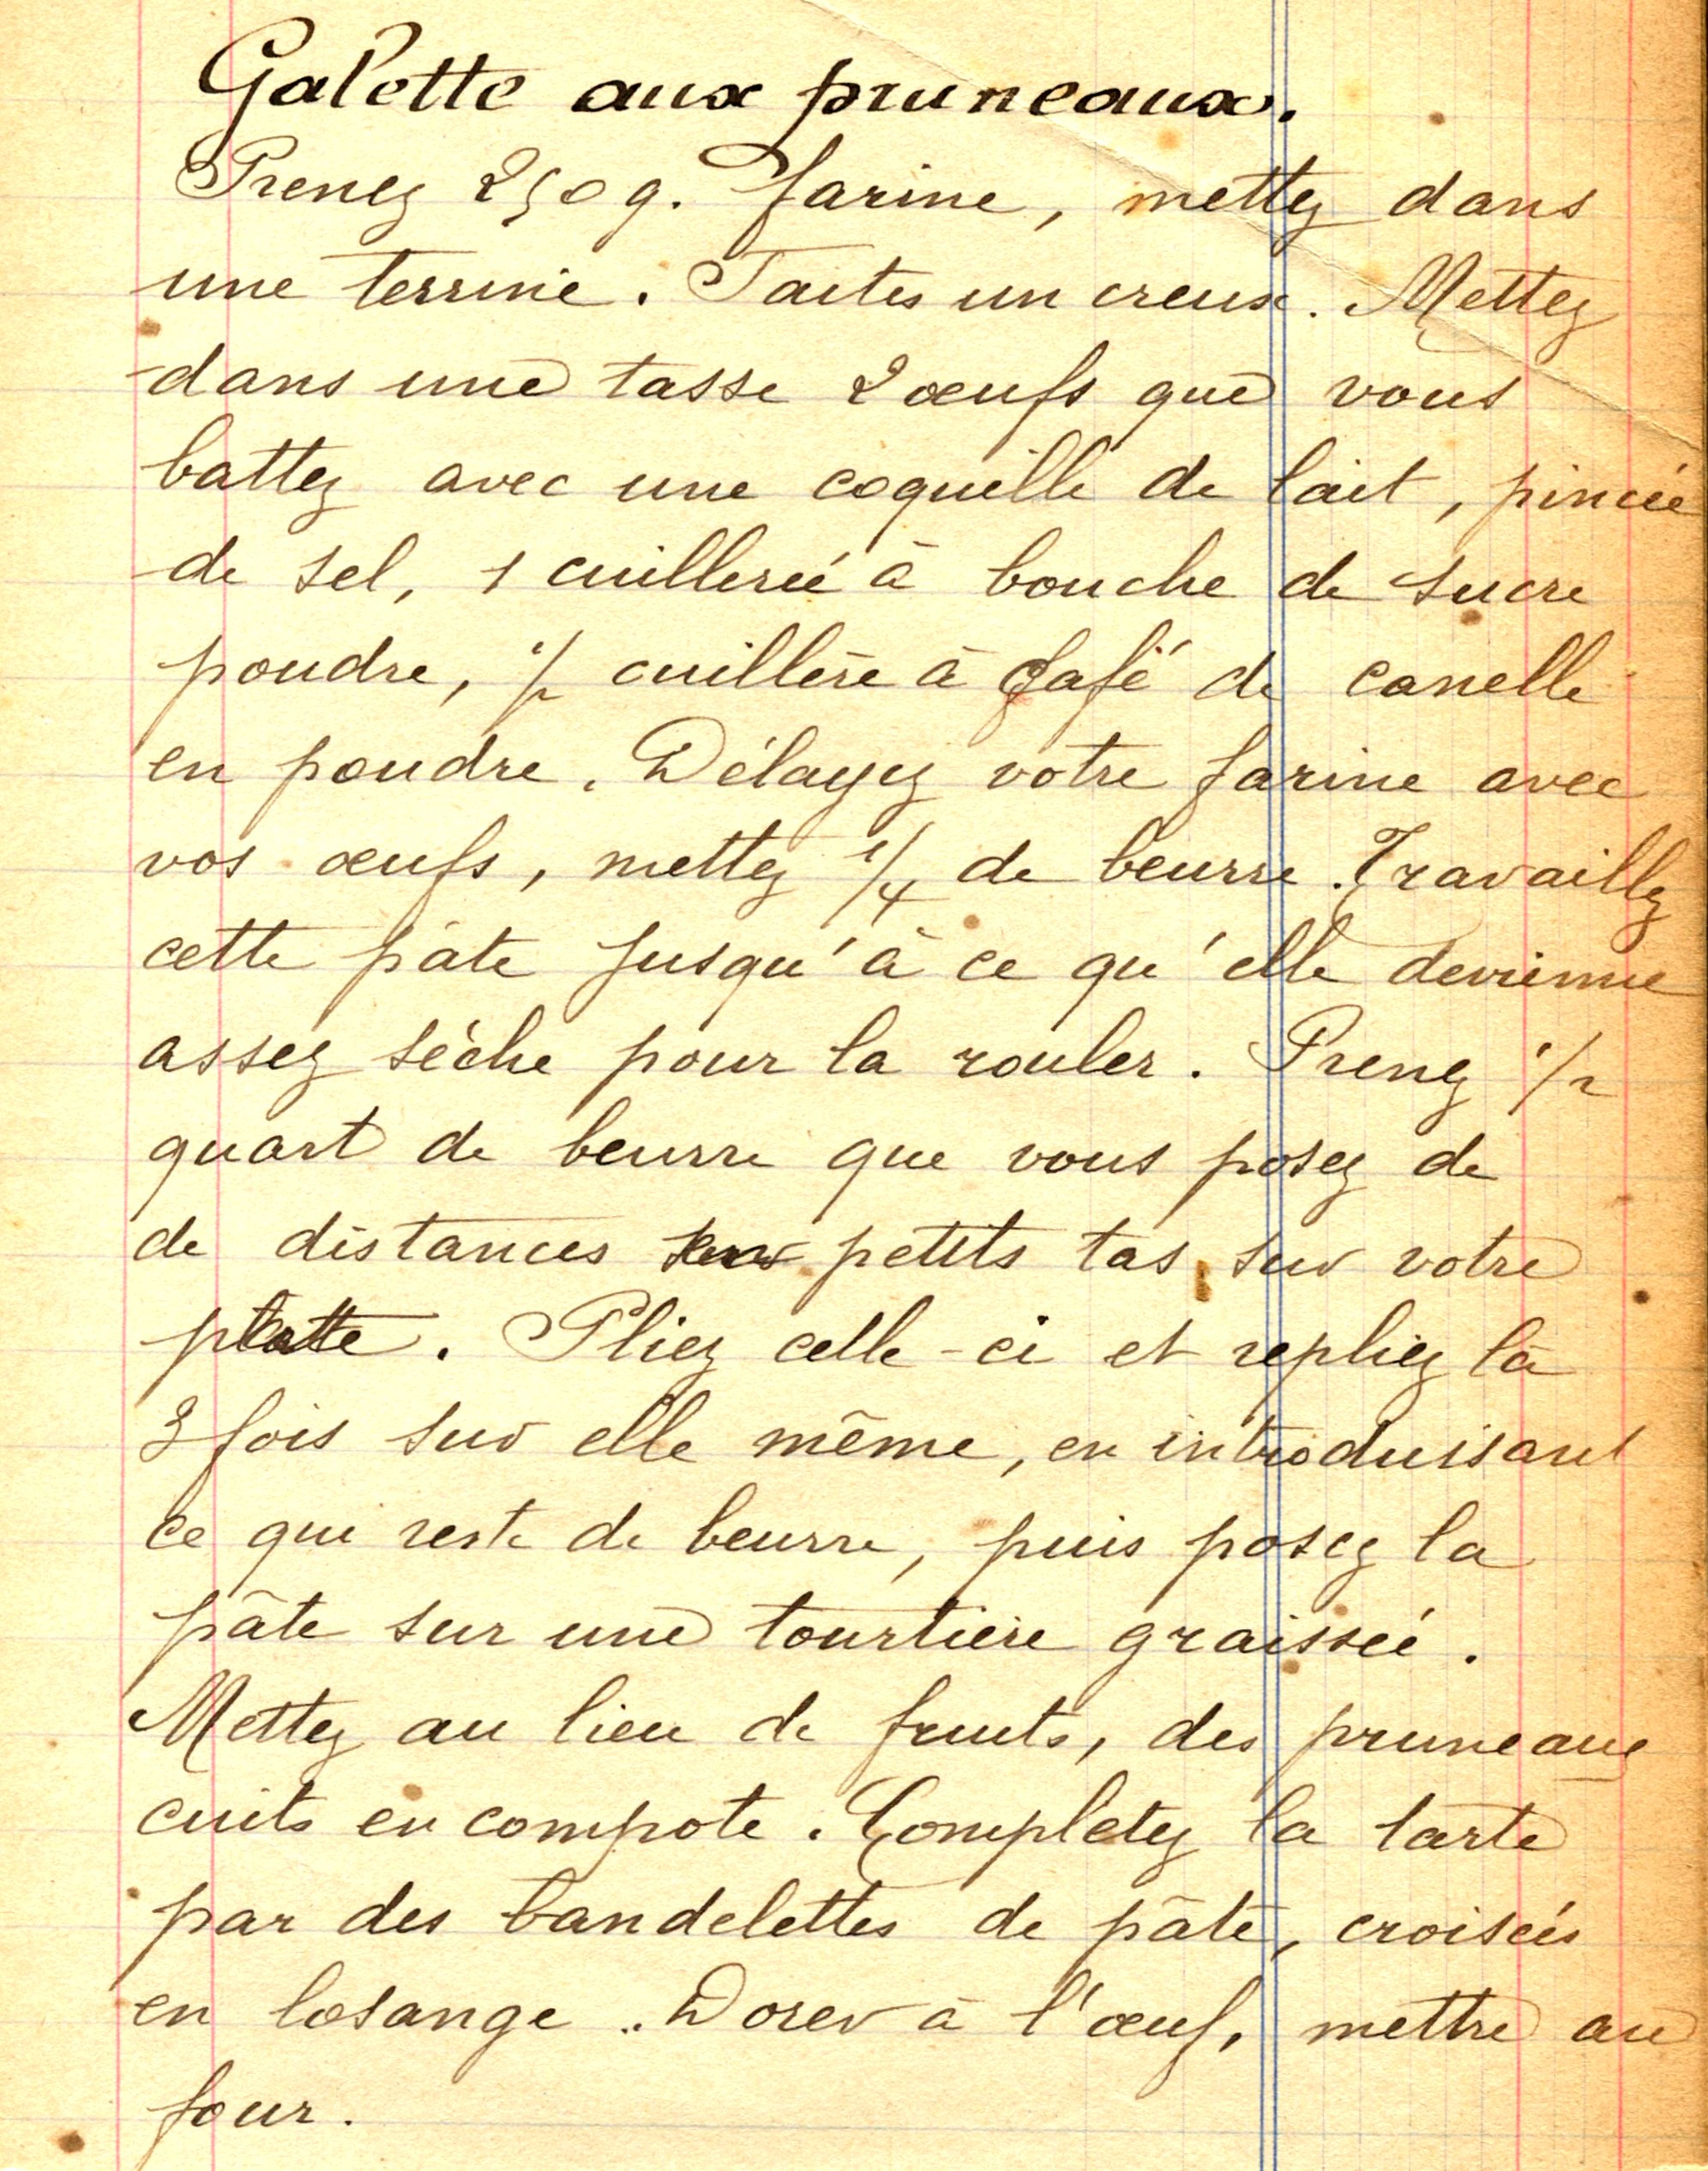 Galette aux pruneaux.
Prenez 250 g. farine, mettez dans
une terrine. Faites un creux. Mettez
dans une tasse 2 œufs que vous
battez avec une coquille de lait, pincée
de sel, 1 cuillerée à bouche de sucre
poudre, 1/2 cuillère à café de canelle
en poudre. Délayez votre farine avec
vos œufs, mettez 1/4 de beurre. Travaillez
cette pâte jusqu'à ce qu'elle devienne
assez sèche pour la rouler. Prenez 1/2
quart de beurre que vous posez de
de distances petits tas sur votre
Pliez celle-ci et repliez là
3 fois sur elle même, en introduisant
ce qui reste de beurre, puis posez la
pâte sur une tourtière graissée.
Mettez au lieu de fruits, des pruneaux
cuits en compote. Completez la tarte
par des bandelettes de pâte, croisées
en losange. Dorer à l'œuf, mettre au
four.